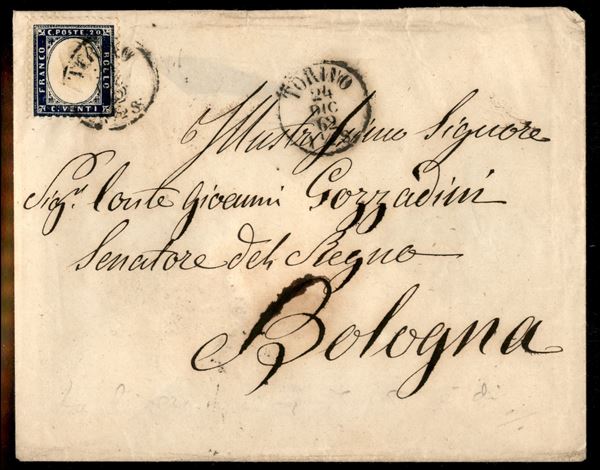 C. POSTE. 20
FRANCO
BOLLO
C. VENTI
TORINO
24
DIC
62
Illustrissimo Signore
Sigr. Conte Giovanni Gozzadini
Senatore del Regno
Bologna